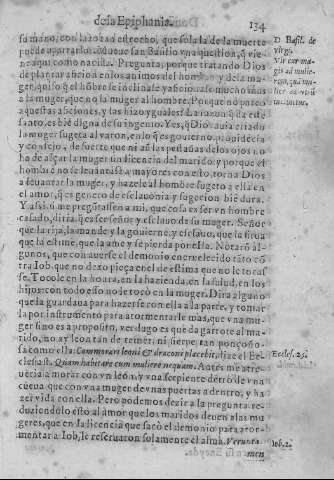 de la Epiphania. 134
su mano, con lazo tan estrecho, que sola la de la muerte
puede apartarlo. Mueue san Basilio vna question, que vie-
ne aqui como nacida. Pregunta, porque tratando Dios
de plantar aficion en los animos del hombre y de la mu-
ger, quiso que el hombre se inclinase y aficionase mucho mas
a la muger, que no la muger al hombre. Porque no parecio
aquestas aficiones, y las hizo yguales? La razon que da este
santo, es bien digna de su ingenio. Yes, que Dios auia criado
la muger sugeta al varon, en lo que es gouierno, prouidencia
y consejo, de suerte que ni aun las pestañas de los ojos no
ha de alçar la muger sin licencia del marido: y porque el
hombre no se leuantasse a mayores con esto, torna Dios
a leuantar la muger, y hazele al hombre sugeto a ella en
el amor, que es genero de esclauonia y sugecion bien dura.
Y assi si me preguntassen a mi, que cosa es ser vn hombre
casado, diria, que es ser señor y esclauo de su muger. Señor
que la rija, la mande y la gouierne, y esclauo, que la sirua
que la estime, que la ame y se pierda por ella. Notarò al-
gunos, que con auerse el demonio encruelecido tanto con-
tra Iob, que no dexo pieça en el de estima que no le tocas
se. Tocole en la honra, en la hazienda, en la salud, en los
hijos: con todo esso no le tocò en la muger. Dira alguno
que la guardaua para hazerse con ella a la parte, y tomar-
la por instrumento para atormentarle mas, que vna mu-
ger si no es a proposito, verdugo es que da garrote al ma-
rido, no ay leon tan de temer, ni sierpe tan ponçoño-
sa como ella: Commorari leoni & draconi placebit, dize el Ec-
clesiast. Quam habitare cum muliere nequam. Antes me atre-
ueria à morar con vn leòn, y vna serpiente dentro de vna
cueua que con vna muger de vnas puertas a dentro, y ha
zer vida con ella. Pero podemos dezir a la pregunta re-
duziendolo esto al amor que los maridos deuen a las mu
geres, que en la licencia que sacò el demonio para ator-
mentar a Iob, le reseruaron solamente el alma. Verunta
men
D. Basil. de
virg.
Vir cur ma-
gis ad mulie-
rem, quā mu-
lier ad virū
Eccles. 25.
Iob. 2.